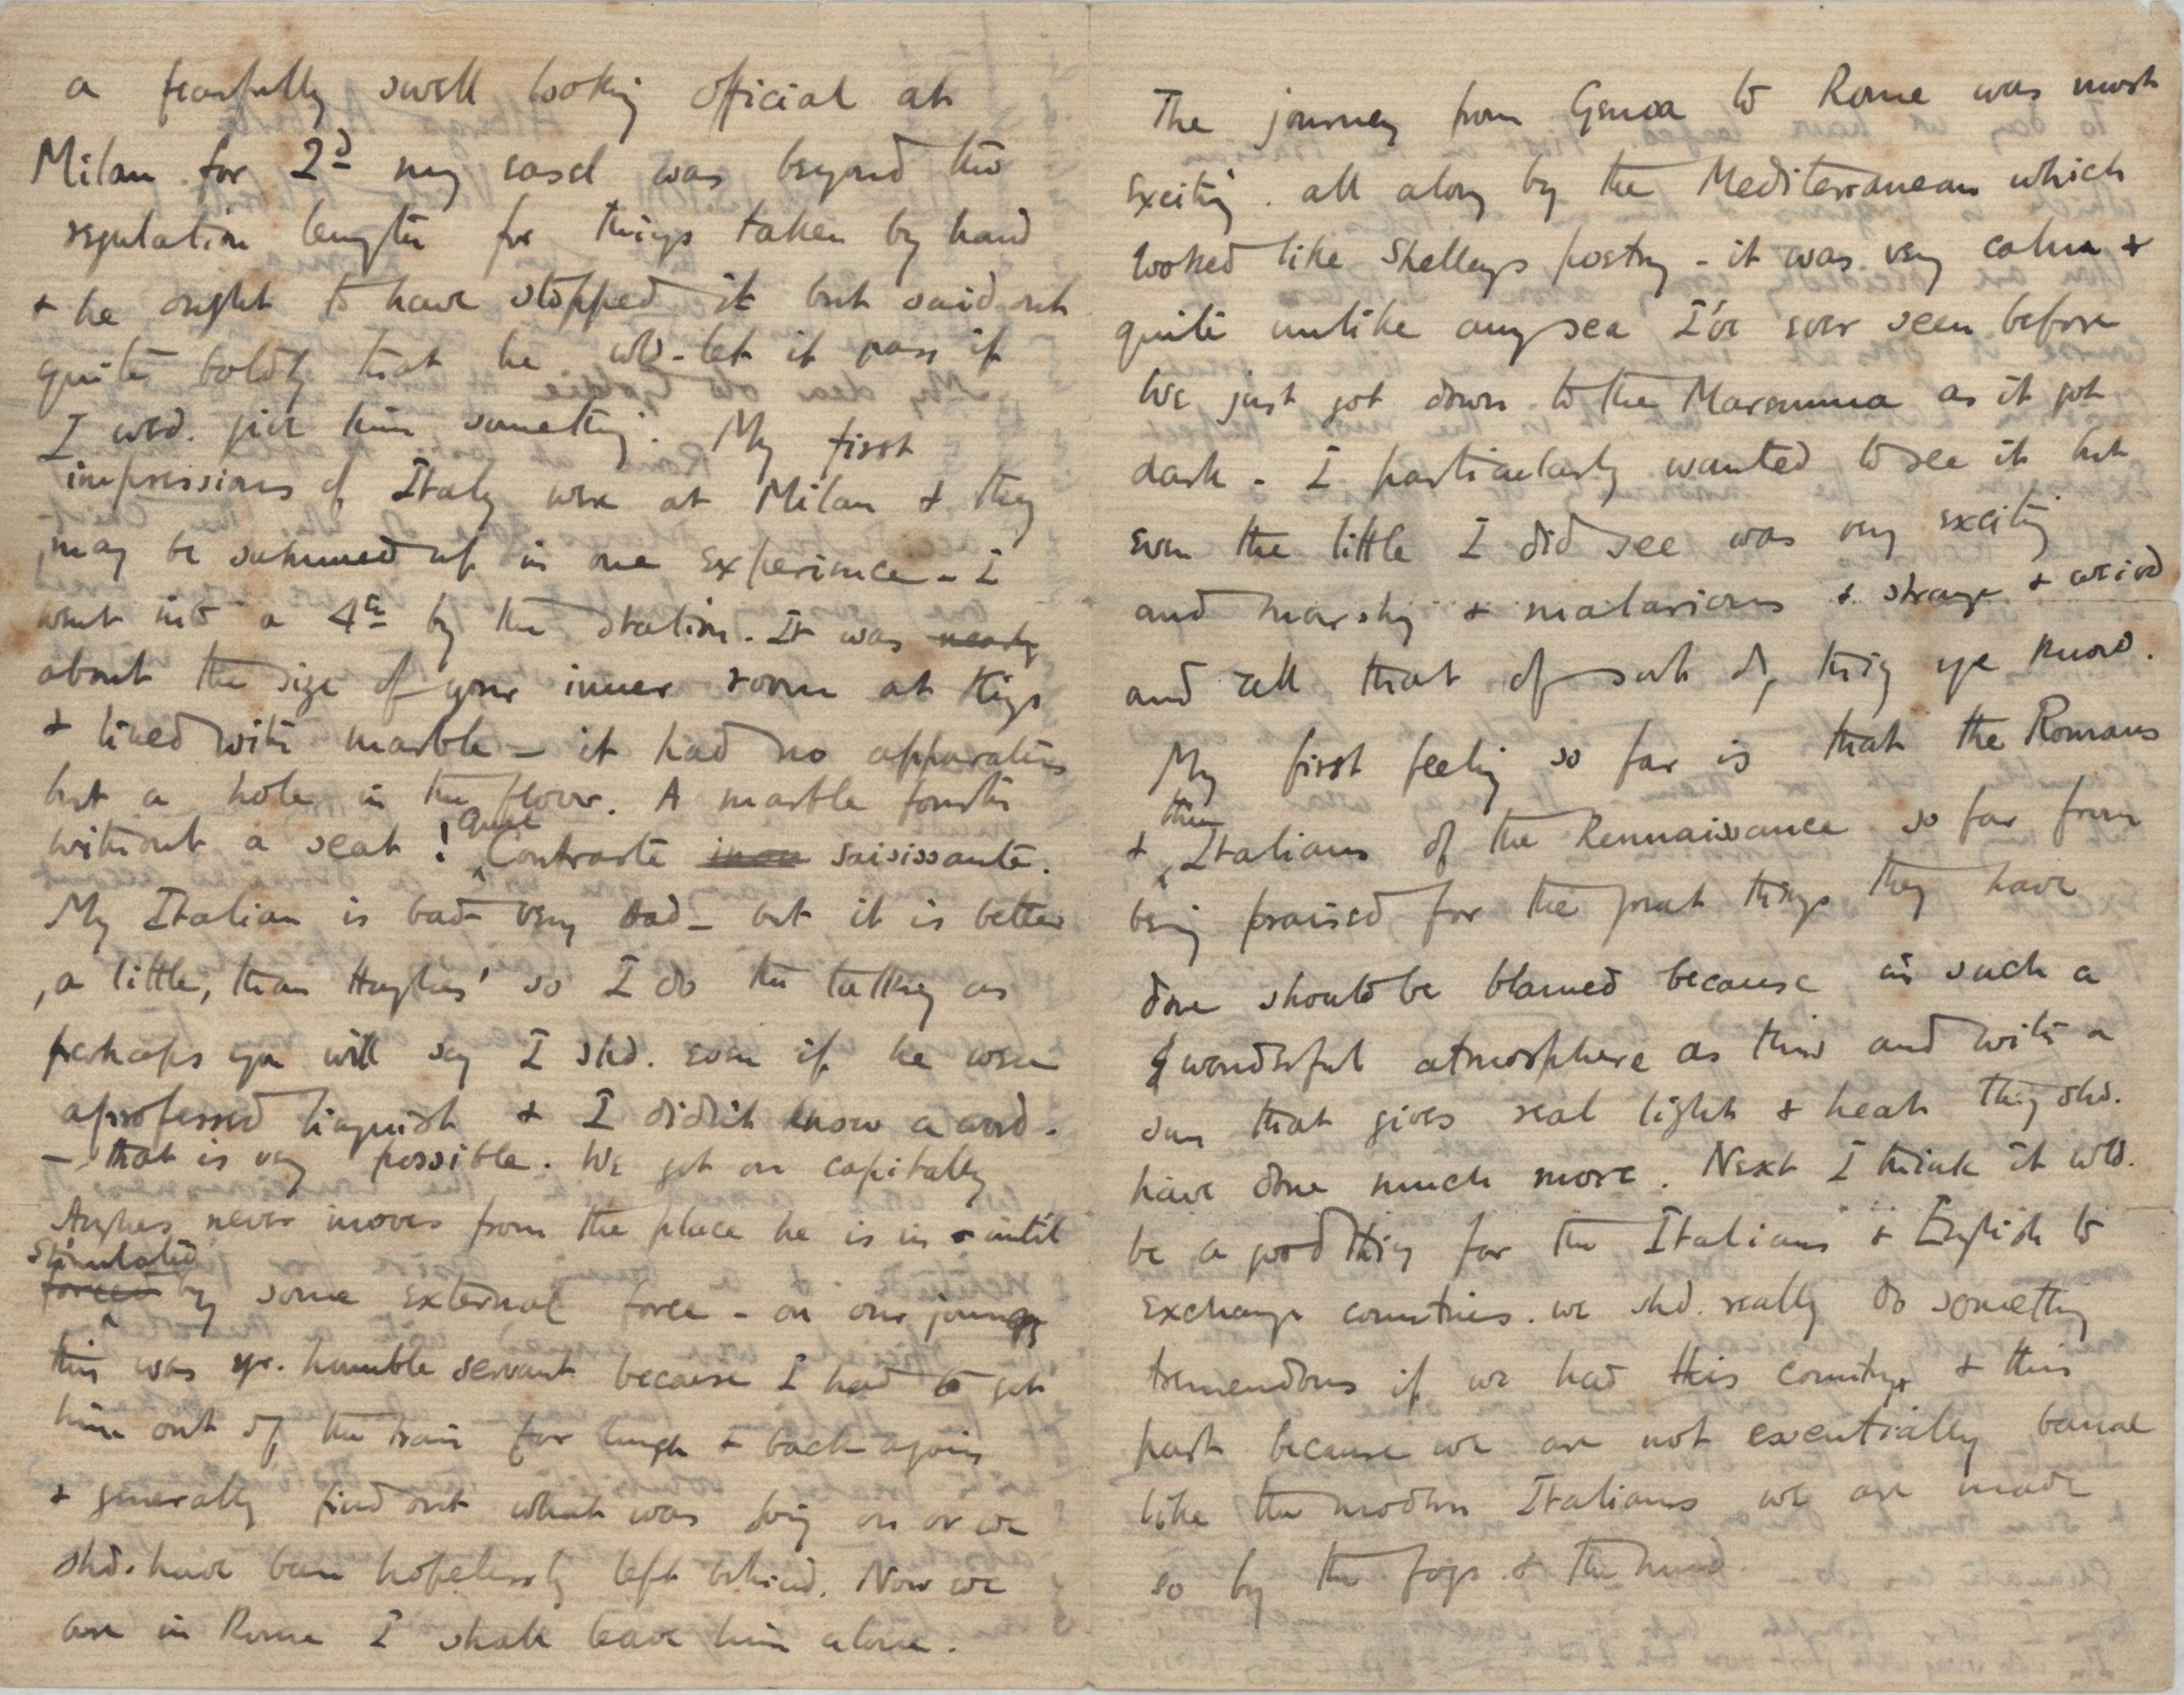 a fearfully swell looking official at
Milan for 2d my easel was beyond the
regulation length for things taken by hand
& he ought to have stopped it but said out
quite boldly that he wld. let it pass if
I wod. give him something. My first
impressions of Italy were at Milan & they
may be summed up in one experience - I
went into a 4th by the station. It was nearly
about the size of your inner room at Kings
& lined with marble - it had no apparatus
but a hole in the floor. A marble
without a seat! Quel Contraste saisissante.
My Italian is bad very bad - but it is better
, a little, than Hughes' so I do the talking as
perhaps you will say I shd. even if he were
a professed linguist & I didn't know a word.
- that is very possible. We get on capitally
Hughes never moves from the place he is in until
stimulated
forced by some external force - on our journey
this was yr. humble servant because I had to get
him out of the train for lunch & back again
& generally find out what was going on or we
shd. have been hopelessly left behind. Now we
are in Rome I shall leave him alone.
The journey from Genoa to Rome was most
exciting. all along by the Mediterranean which
looked like Shelleys poetry - it was very calm &
quite unlike any sea I've ever seen before
We just got down to the Maremma as it got
dark - I particularly wanted to see it but
even the little I did see was very exciting
and marshy & malarious & strange & weird
and all that of sort of thing ye know.
My first feeling so far is that the Romans
& the Italians of the Rennaissance so far from
being praised for the great things they have
done should be blamed because in such a
wonderful atmosphere as this and with a
sun that gives real light & heat they shd.
have done much more. Next I think it wld.
be a good thing for the Italians & English to
exchange countries. we shd. really do something
tremendous if we had this country & this
past because we are not essentially banal
like the modern Italians we are made
so by the fogs & the mud.